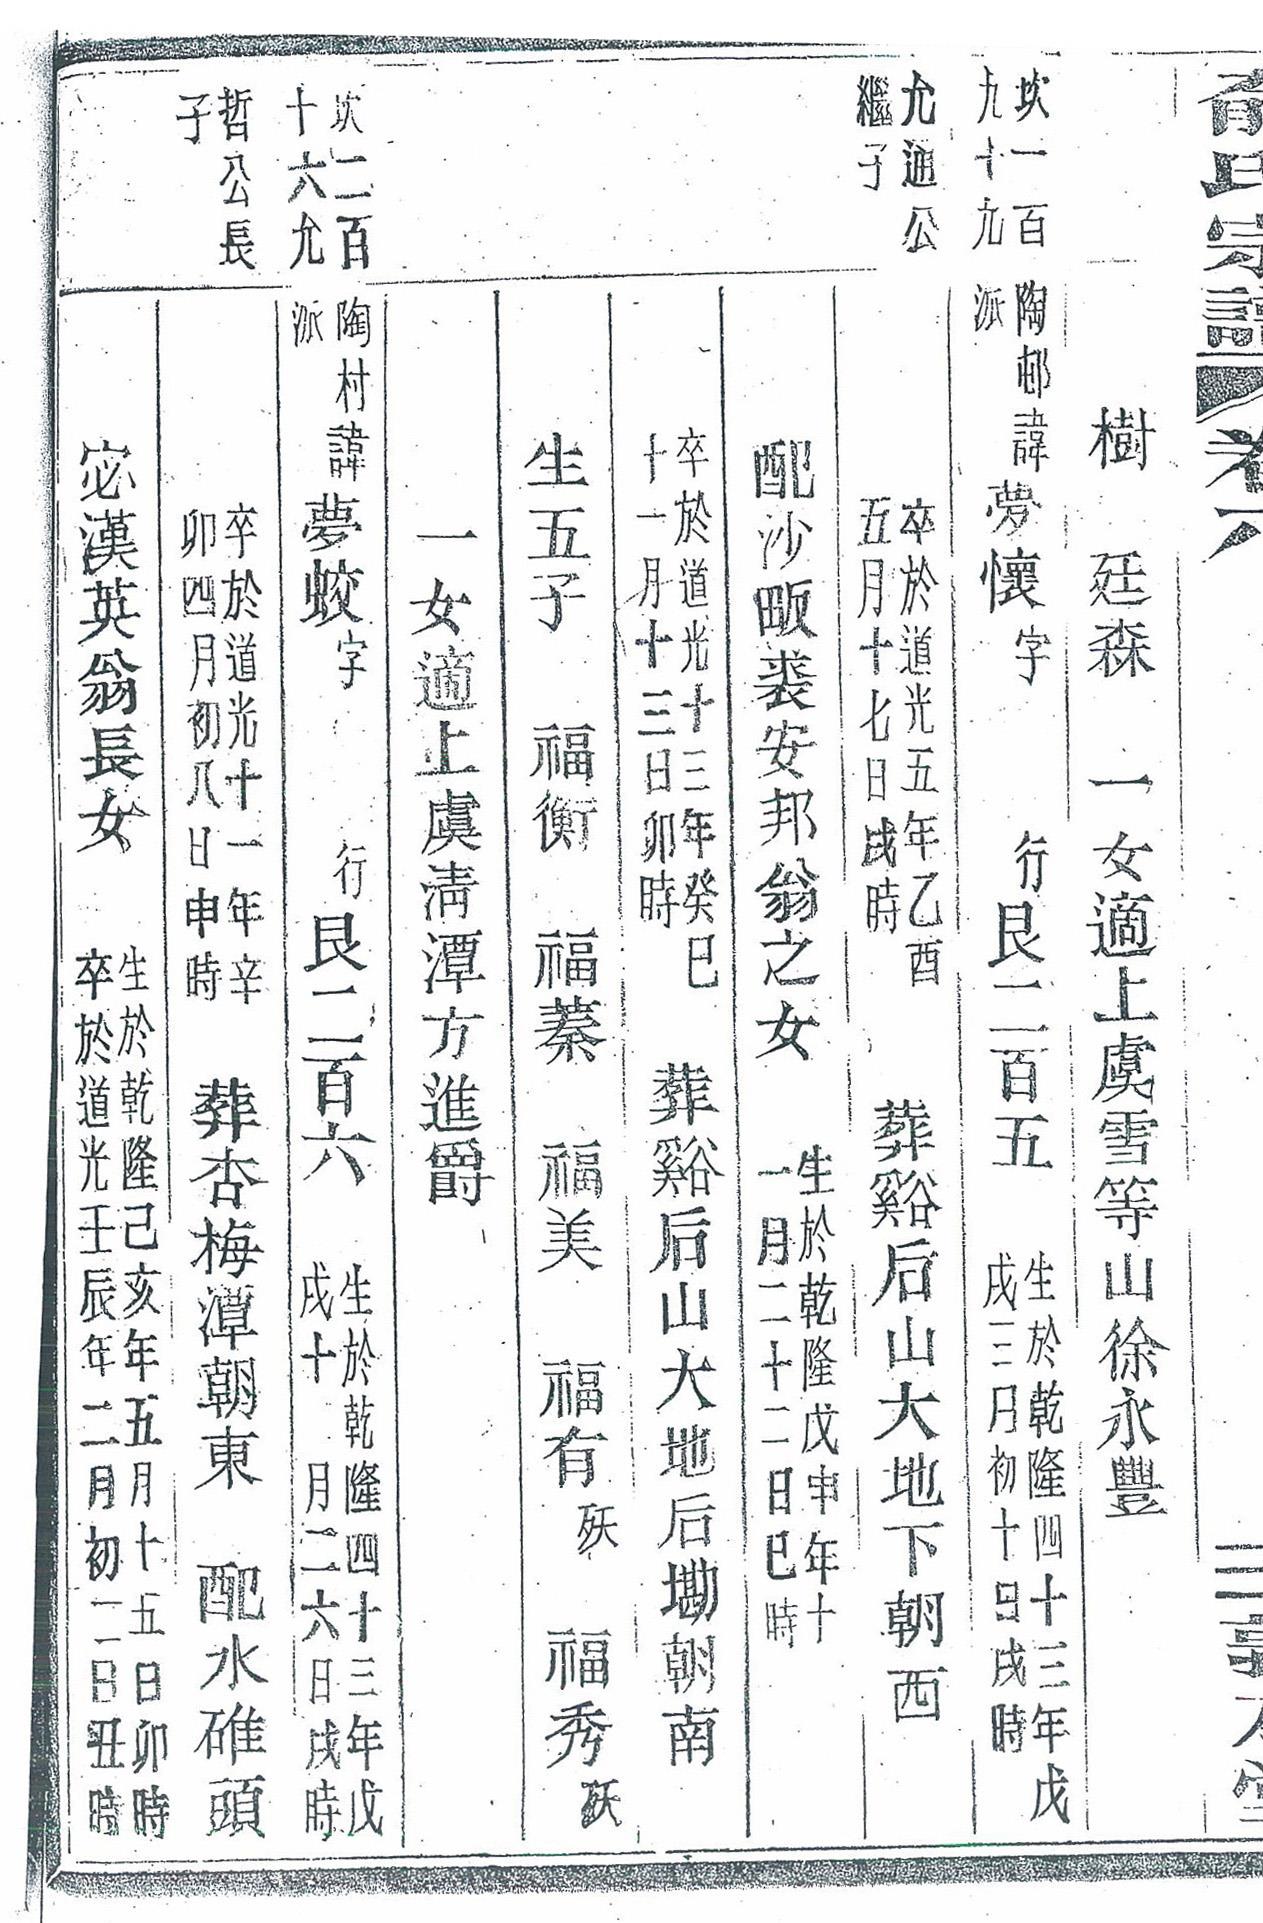 俞氏宗譜
卷六
樹　廷森　一女適上虞雪等山徐永豐
坎一百
九十九
陶邨諱夢懷字　行艮二百五
派
生於乾隆四十三年戊
戌三月初十日戌時
允通公
繼子
卒於道光五年乙酉
五月十七日戌時
葬谿后山大地下朝西
配沙畈裘安邦翁之女
生於乾隆戊申年十
一月二十二日巳時
卒於道光十三年癸巳
十一月十三日卯時
葬谿后山大地后塝朝南
生五子　福衡　福蓁　福美　福有殀　福秀殀
一女適上虞淸潭方進爵
坎二百
十六允
陶村諱夢蛟字　行艮二百六
派
生於乾隆四十三年戊
戌十月二六日戌時
哲公長
子
卒於道光十一年辛
卯四月初八日申時
葬杏梅潭朝東　配水碓頭
宓漢英翁長女
生於乾隆己亥年五月十五日卯時
卒於道光壬辰年二月初二日丑時